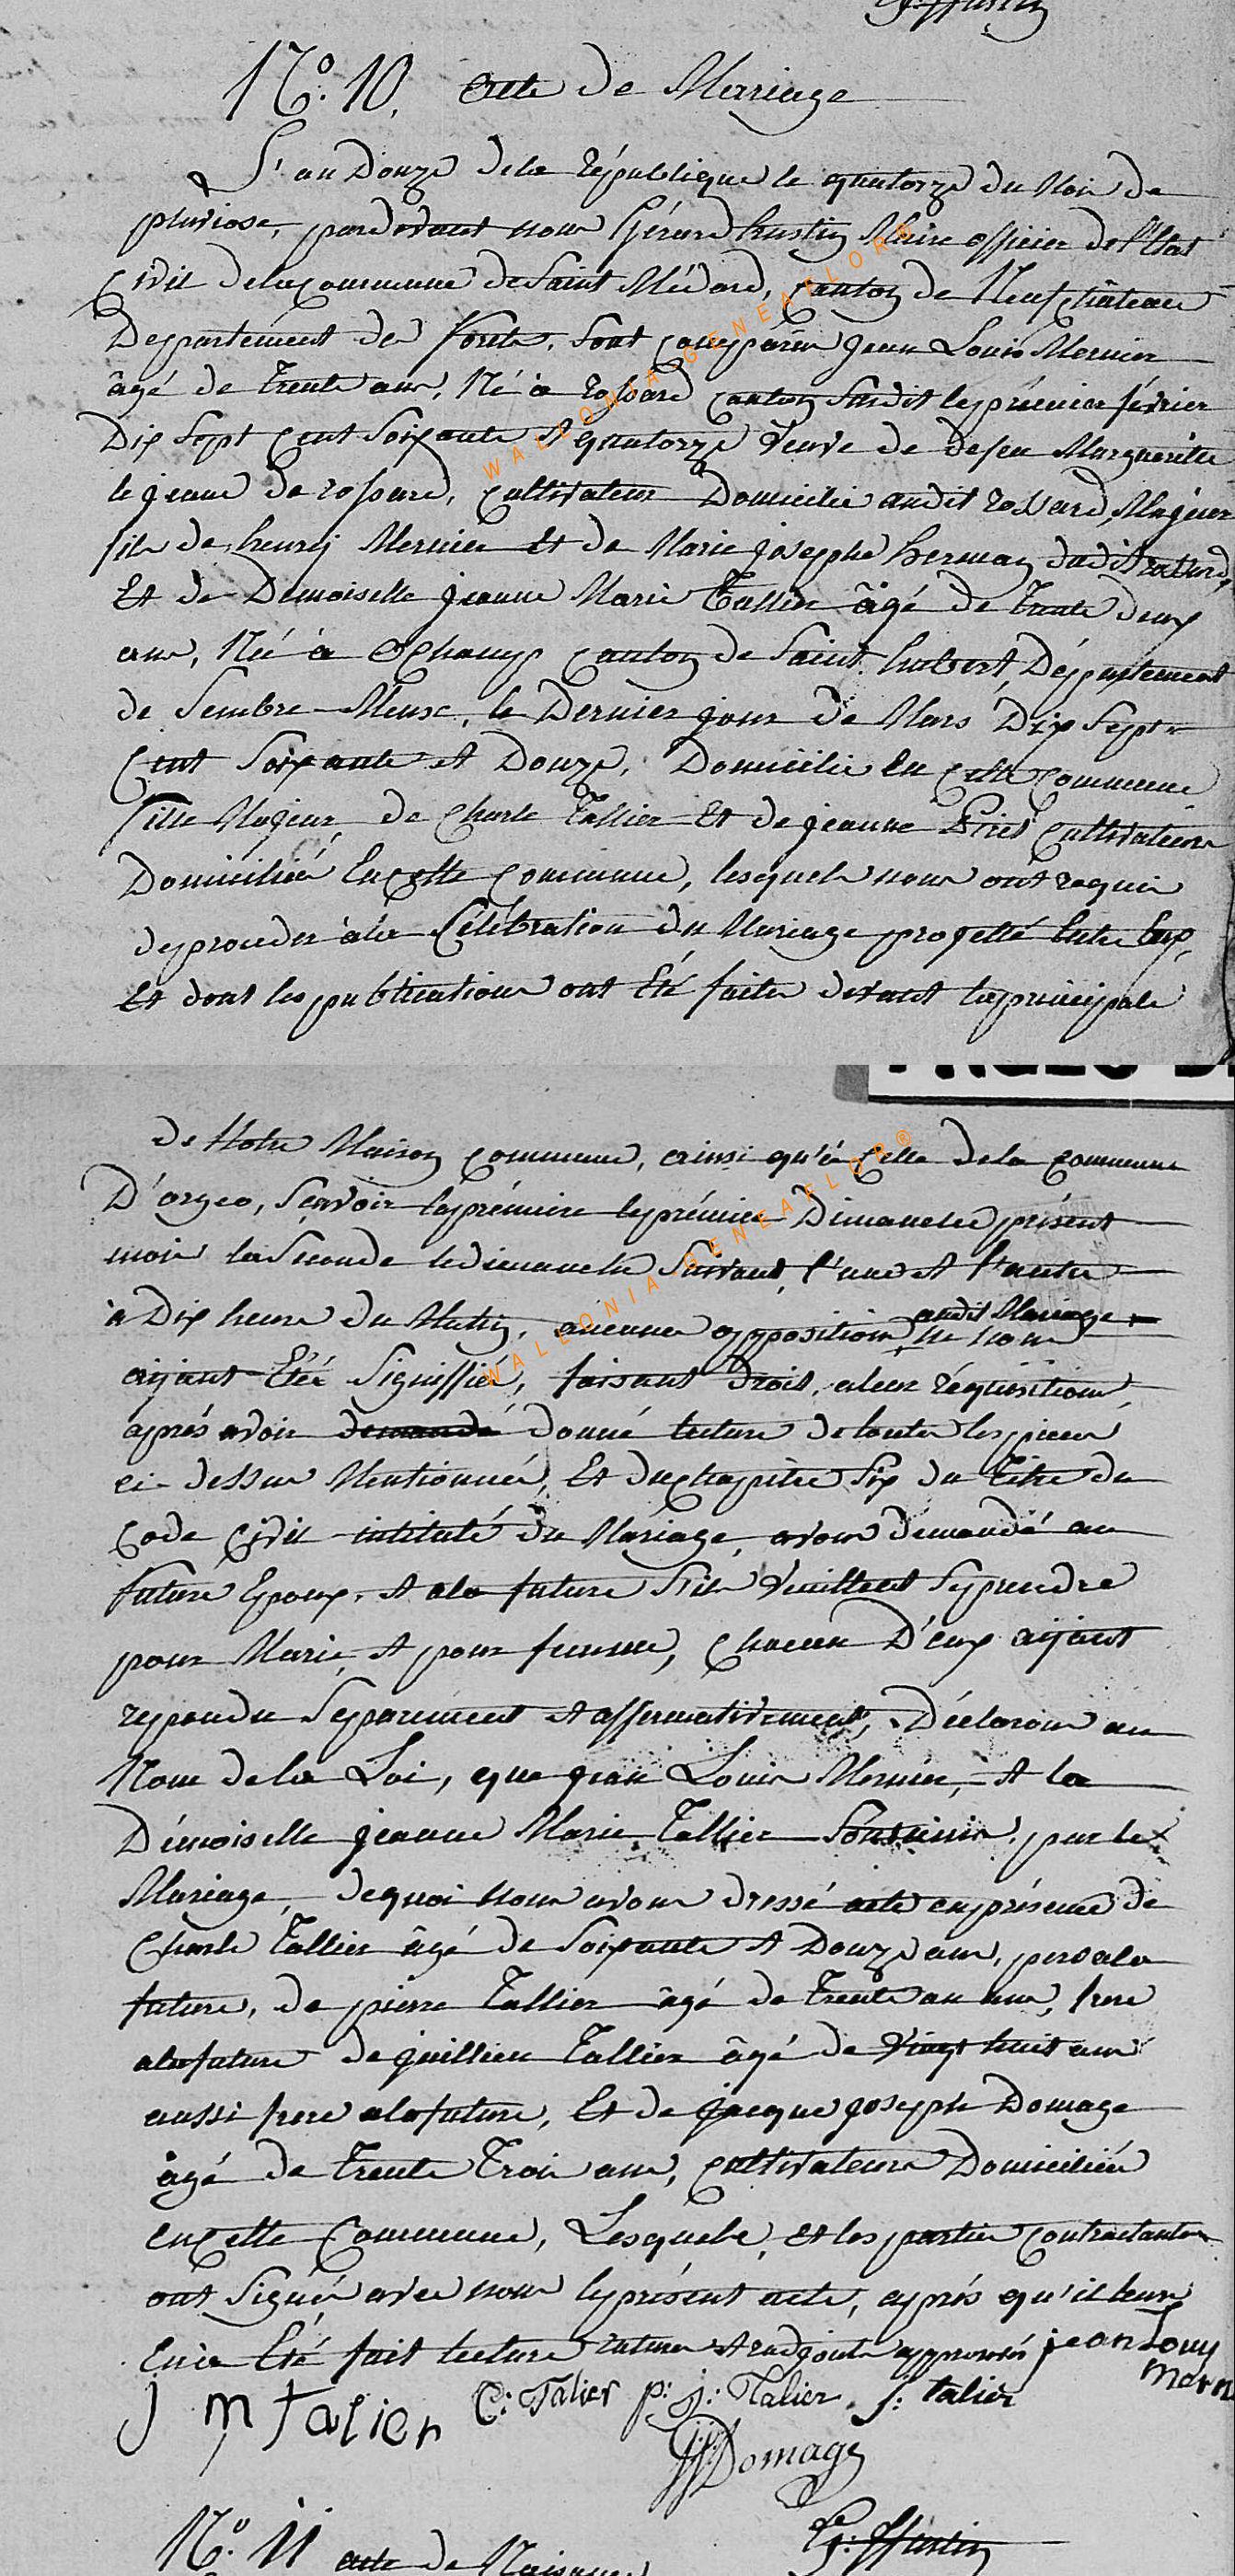 N.o 10. acte de Mariage
L'an Douze dela République le quatorze du Mois de
pluviose, pardevant nous Gérard hustin Maire officier de l'Etat
Civil delacommune de Saint Médard, Canton de Neufchâteau
Departement des Forets, sont comparûs Jean Louis Mernier
âgé de trente ans, Né à rossard Canton susdit leprémier février
Dix sept cent soixante et quatorze veuve de defeu Marguerite
le jeune de rossard, cultivateur Domicilié audit rossard, Majeur
fils de henrij Mernier et de Marie josephe herman dudit rossard,
Et de Demoiselle jeanne Marie Tallier âgé de trente deux
ans, Née à Ochamps Canton de Saint hubert, Département
de Sembre-Meuse, le Dernier jour de Mars Dix Sept
Cent Soixante et Douze, Domicilié en cette commune
fille Majeur de Charle Tallier Et de jeanne cultivateurs
Domiciliés En cette commune, lesquels nous ont requis
deproceder àla Célébration du Mariage projetté Entre Eux,
Et dont les publications ont Eté faites devant laprincipale
de Notre Maison commune, ainsi qu'à celle dela commune
D'orgeo, Sçavoir laprémiere leprémier Dimanche présent
mois la Seconde ledimanche Suivant, l'une et l'autre
à Dix heure du Matin, aucune opposition audit Mariage ne nous
aijant Eté Signiffiée, faisant droit, aleur réquisitions,
aprés avoir demandé donné lecture de toutes les pieces
ci-dessus Mentionnées, Et duchapitre Six du Titre du
Code Civil intitulé du Mariage, avons demandé au
future Epoux, et ala future s'ils veuillent Seprendre
pour Marie et pour femme, Chacun D'eux aijant
repondu Séparément et affermativement, Déclarons au
Nom dela Loi, que jean Louis Mernier, et la
Démoiselle jeanne Marie Tallier Sont unis, par le
Mariage, dequoi nous avons dressé acte enprésence de
Charle Tallier âgé de Soixante et Douze ans, pere ala
future, de pierre Tallier âgé de Trente un ans, frere
alafuture de juillien Tallier âgé de vingt huit ans
aussi frere alafuture, Et de jacque joseph Domage
âgé de trente Trois ans, cultivateurs Domiciliés
encette Commune, Lesquels, et les partier contractantes
ont Signés avec nous leprésent acte, après qu'il leurs
En a Eté fait lecture rature et radjoute approuvés jean Louy
Mern
j m talier C: Talier p: j: Talier j: talier
JJ Domage
N.o 11 acte de Naissance
G: Hustin
WALLONIA-GENEAFLOR®
WALLONIA-GENEAFLOR®